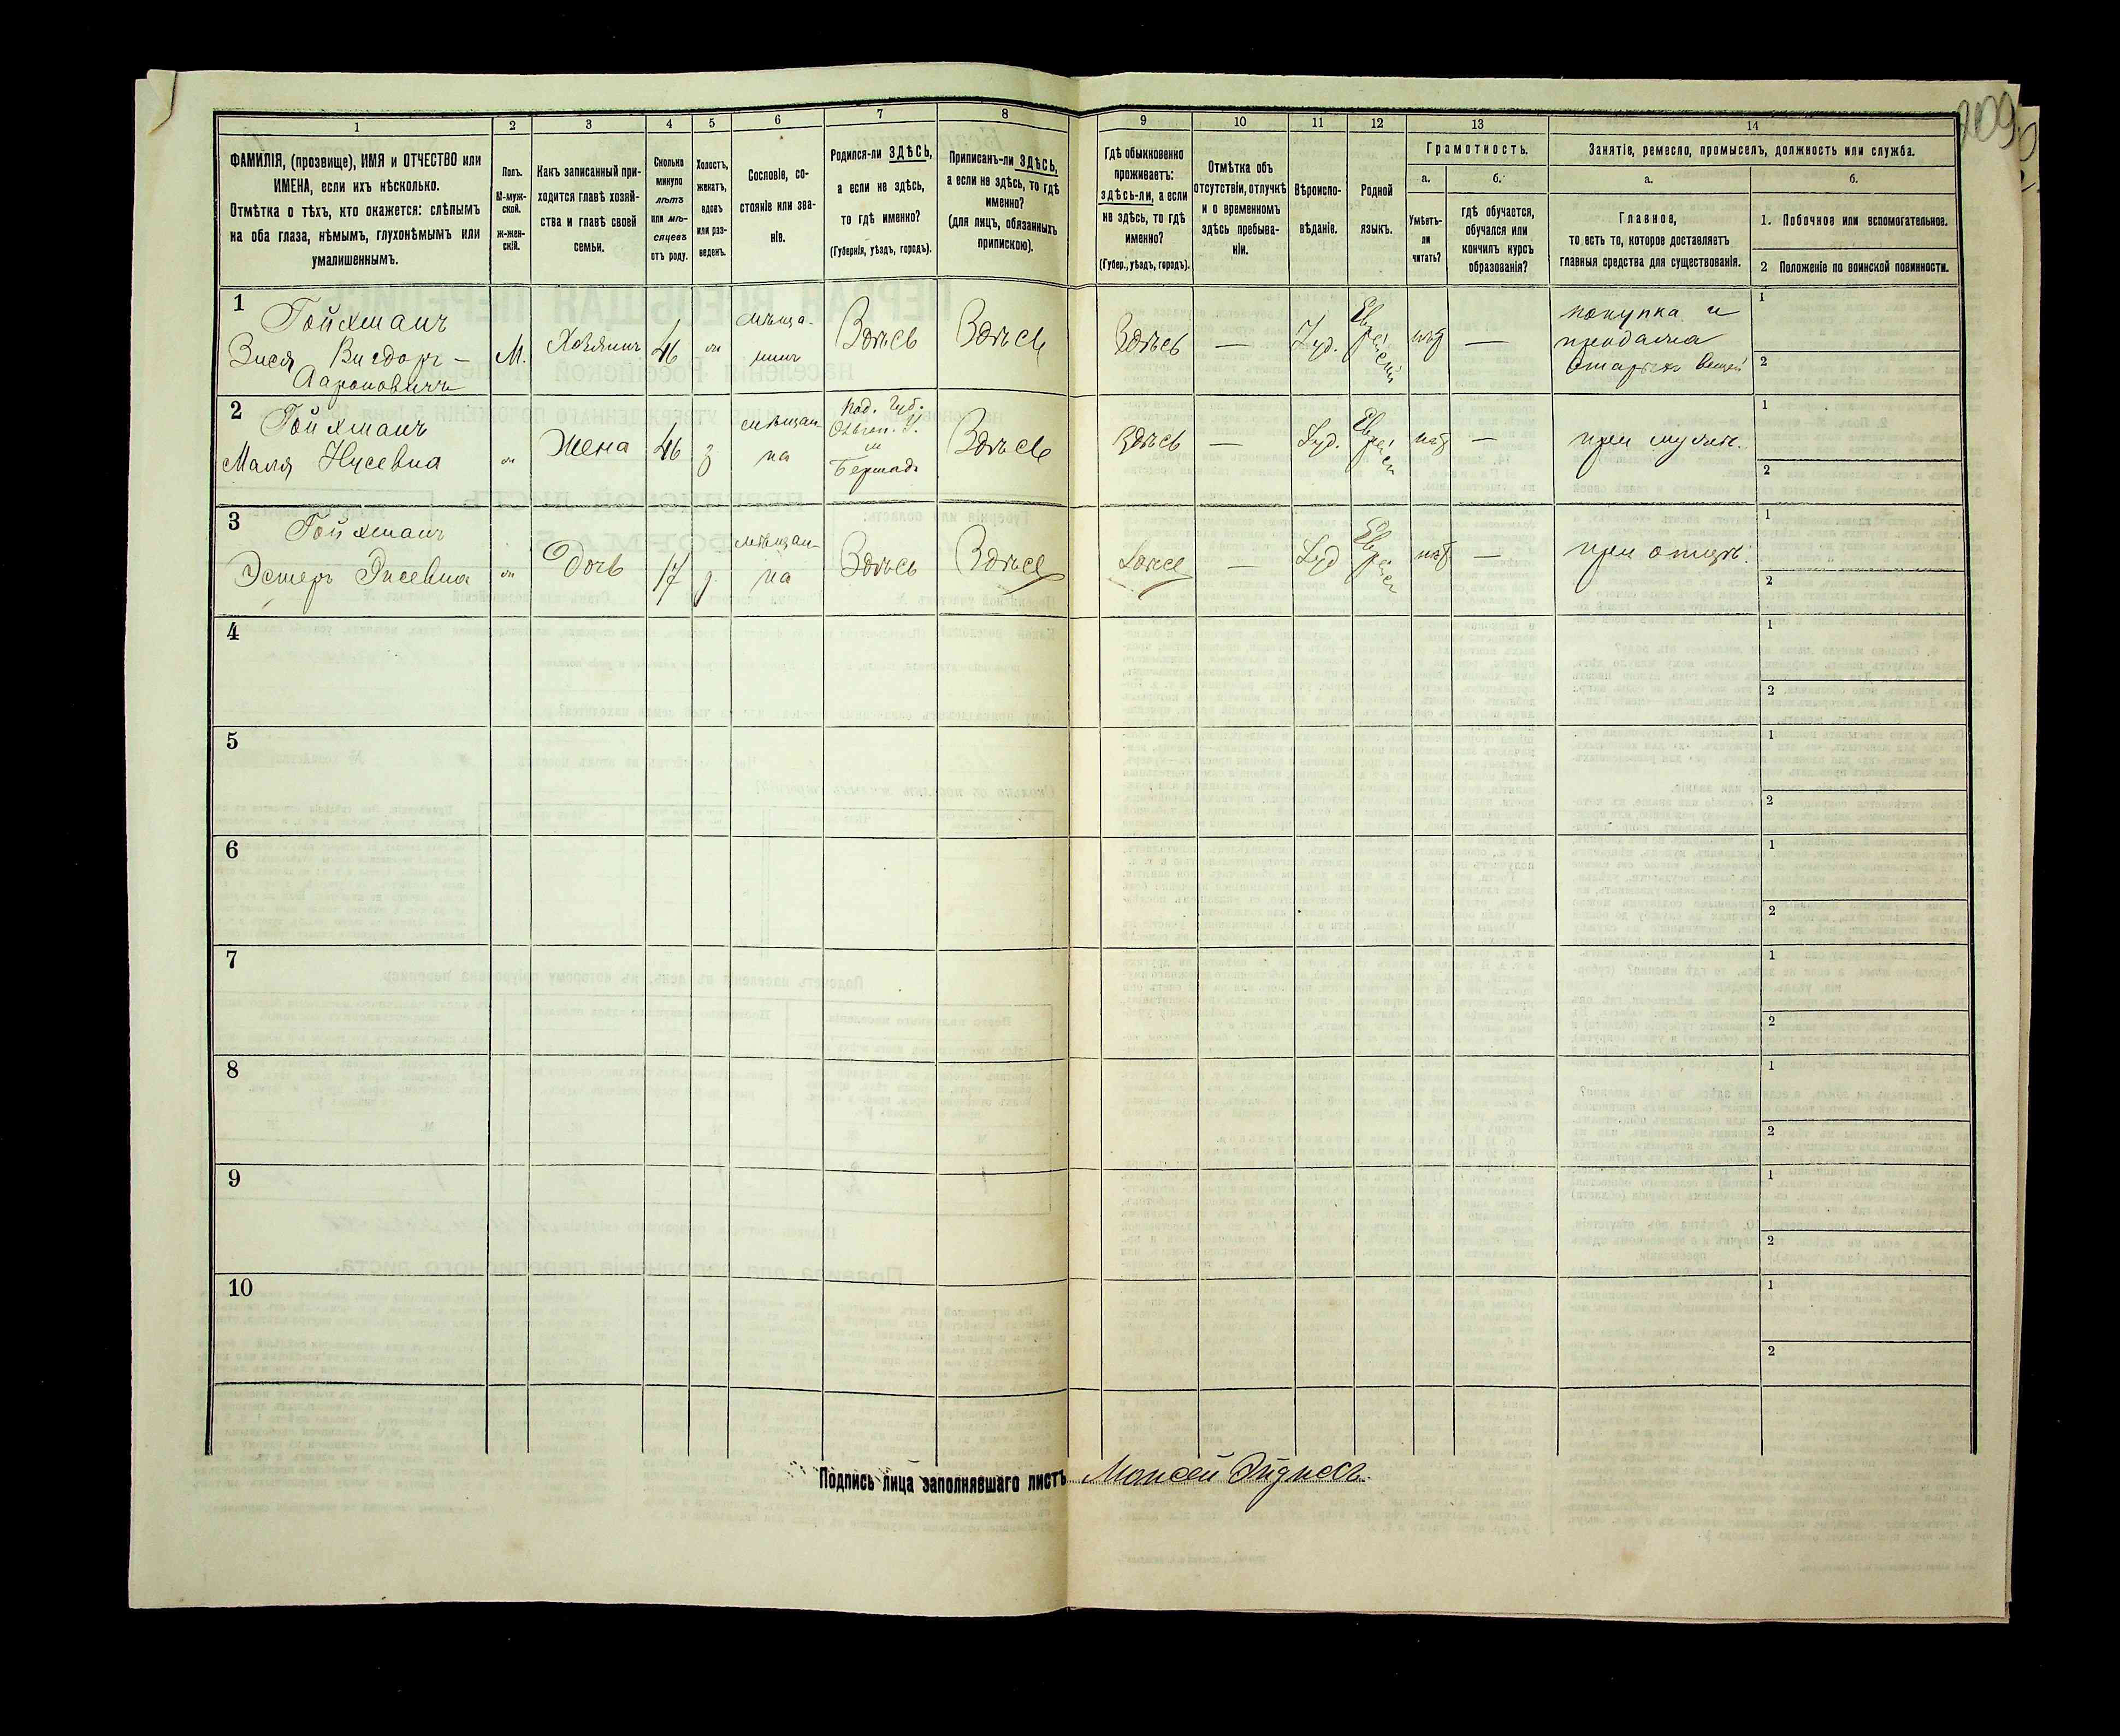 209
1
2
3
4
5
6
7
8
9
10
11
12
13
14
ФАМИЛІЯ, (прозвище), ИМЯ и ОТЧЕСТВО или
ИМЕНА, если ихъ нѣсколько.
Отмѣтка о тѣхъ, кто окажется: слѣпымъ
на оба глаза, нѣмымъ, глухонѣмымъ или
умалишеннымъ.
Полъ.
М-муж-
ской.
ж-жен-
скій.
Какъ записанный при-
ходится главѣ хозяй-
ства и главѣ своей
семьи.
Сколько
минуло
лѣтъ
или мѣ-
сяцевъ
отъ роду.
Холостъ,
женатъ,
вдовъ
или раз-
веденъ.
Сословіе, со-
стояніе или зва-
ніе.
Родился-ли ЗДѢСЬ,
а если не здѣсь,
то гдѣ именно?
(Губернія, уѣздъ, городъ).
Приписанъ-ли ЗДѢСЬ,
а если не здѣсь, то гдѣ
именно?
(для лицъ, обязанныхъ
припискою).
Гдѣ обыкновенно
проживаетъ:
здѣсь-ли, а если
не здѣсь, то гдѣ
именно?
(Губер., уѣздъ, городъ).
Отмѣтка объ
отсутствіи, отлучкѣ
и о временномъ
здѣсь пребыва-
ніи.
Вѣроиспо-
вѣданіе.
Родной
языкъ.
Грамотность.
а.
Умѣетъ-
ли
читать?
б.
гдѣ обучается,
обучался или
кончилъ курсъ
образованія?
Занятіе, ремесло, промыселъ, должность или служба.
а.
Главное,
то есть то, которое доставляетъ
главныя средства для существованія.
б.
1. Побочное или вспомогательное.
2 Положеніе по воинской повинности.
1
Гойхманъ
Зися Вигдоръ-
Аароновичъ
М.
Хозяинъ
46
мѣща-
нинъ
Здѣсь
Здѣсь
Здѣсь
—
Іуд.
Еврейскій
нѣт
—
покупка и
продажа
старыхъ вещей
1
2
2
Гойхманъ
Маля Нусевна
Жена
46
з
мѣщан
ка
Под. Губ.
Ольгоп. У.
м
Бершадь
Здѣсь
Здѣсь
—
Іуд.
Еврейс
нѣт
—
при мужѣ.
1
2
3
Гойхманъ
Эстеръ Зисевна
Дочь
17
мѣщан-
ка
Здѣсь
Здѣсь
—
Іуд
Еврейс
нѣт
—
при отцѣ.
1
2
4
1
2
5
1
2
6
1
2
7
1
2
8
1
2
9
1
2
10
1
2
Подпись лица заполнявшаго листъ Моисей